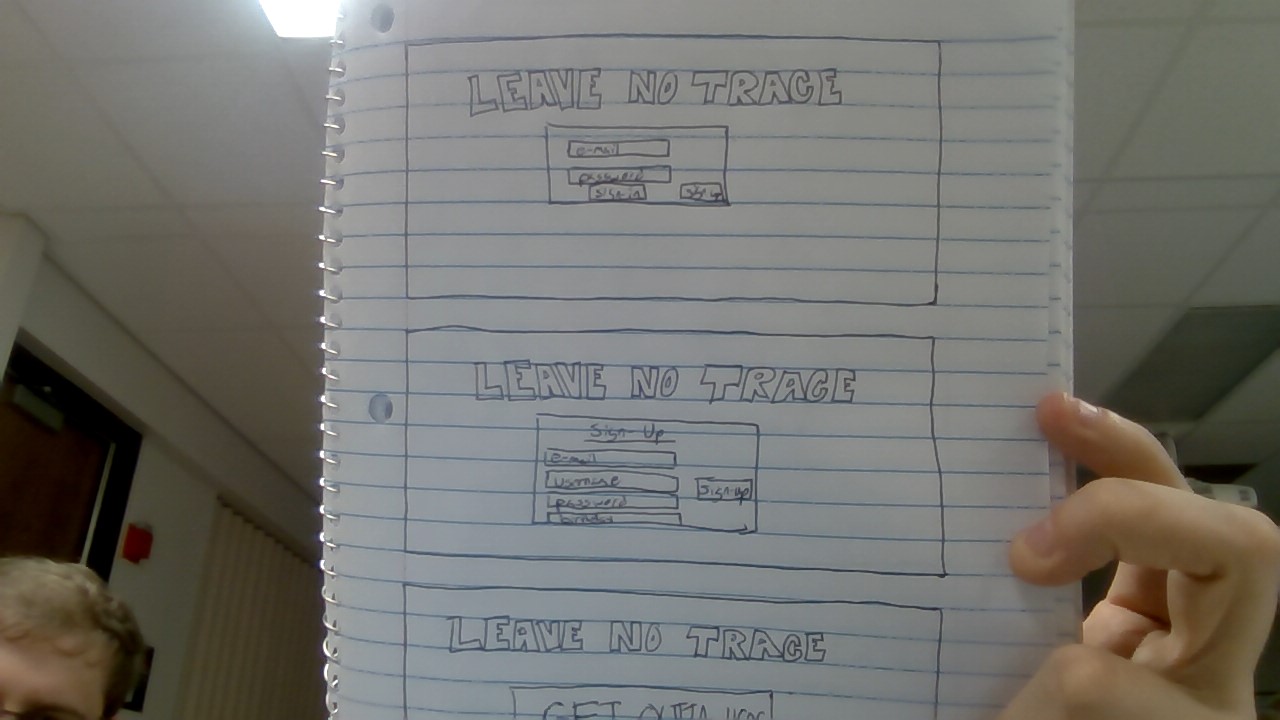 LEAVE NO TRACE
e-mail
password
sign-in sign up
LEAVE NO TRACE
Sign-Up
e-mail
username
password
Sign-up
LEAVE NO TRACE
GET